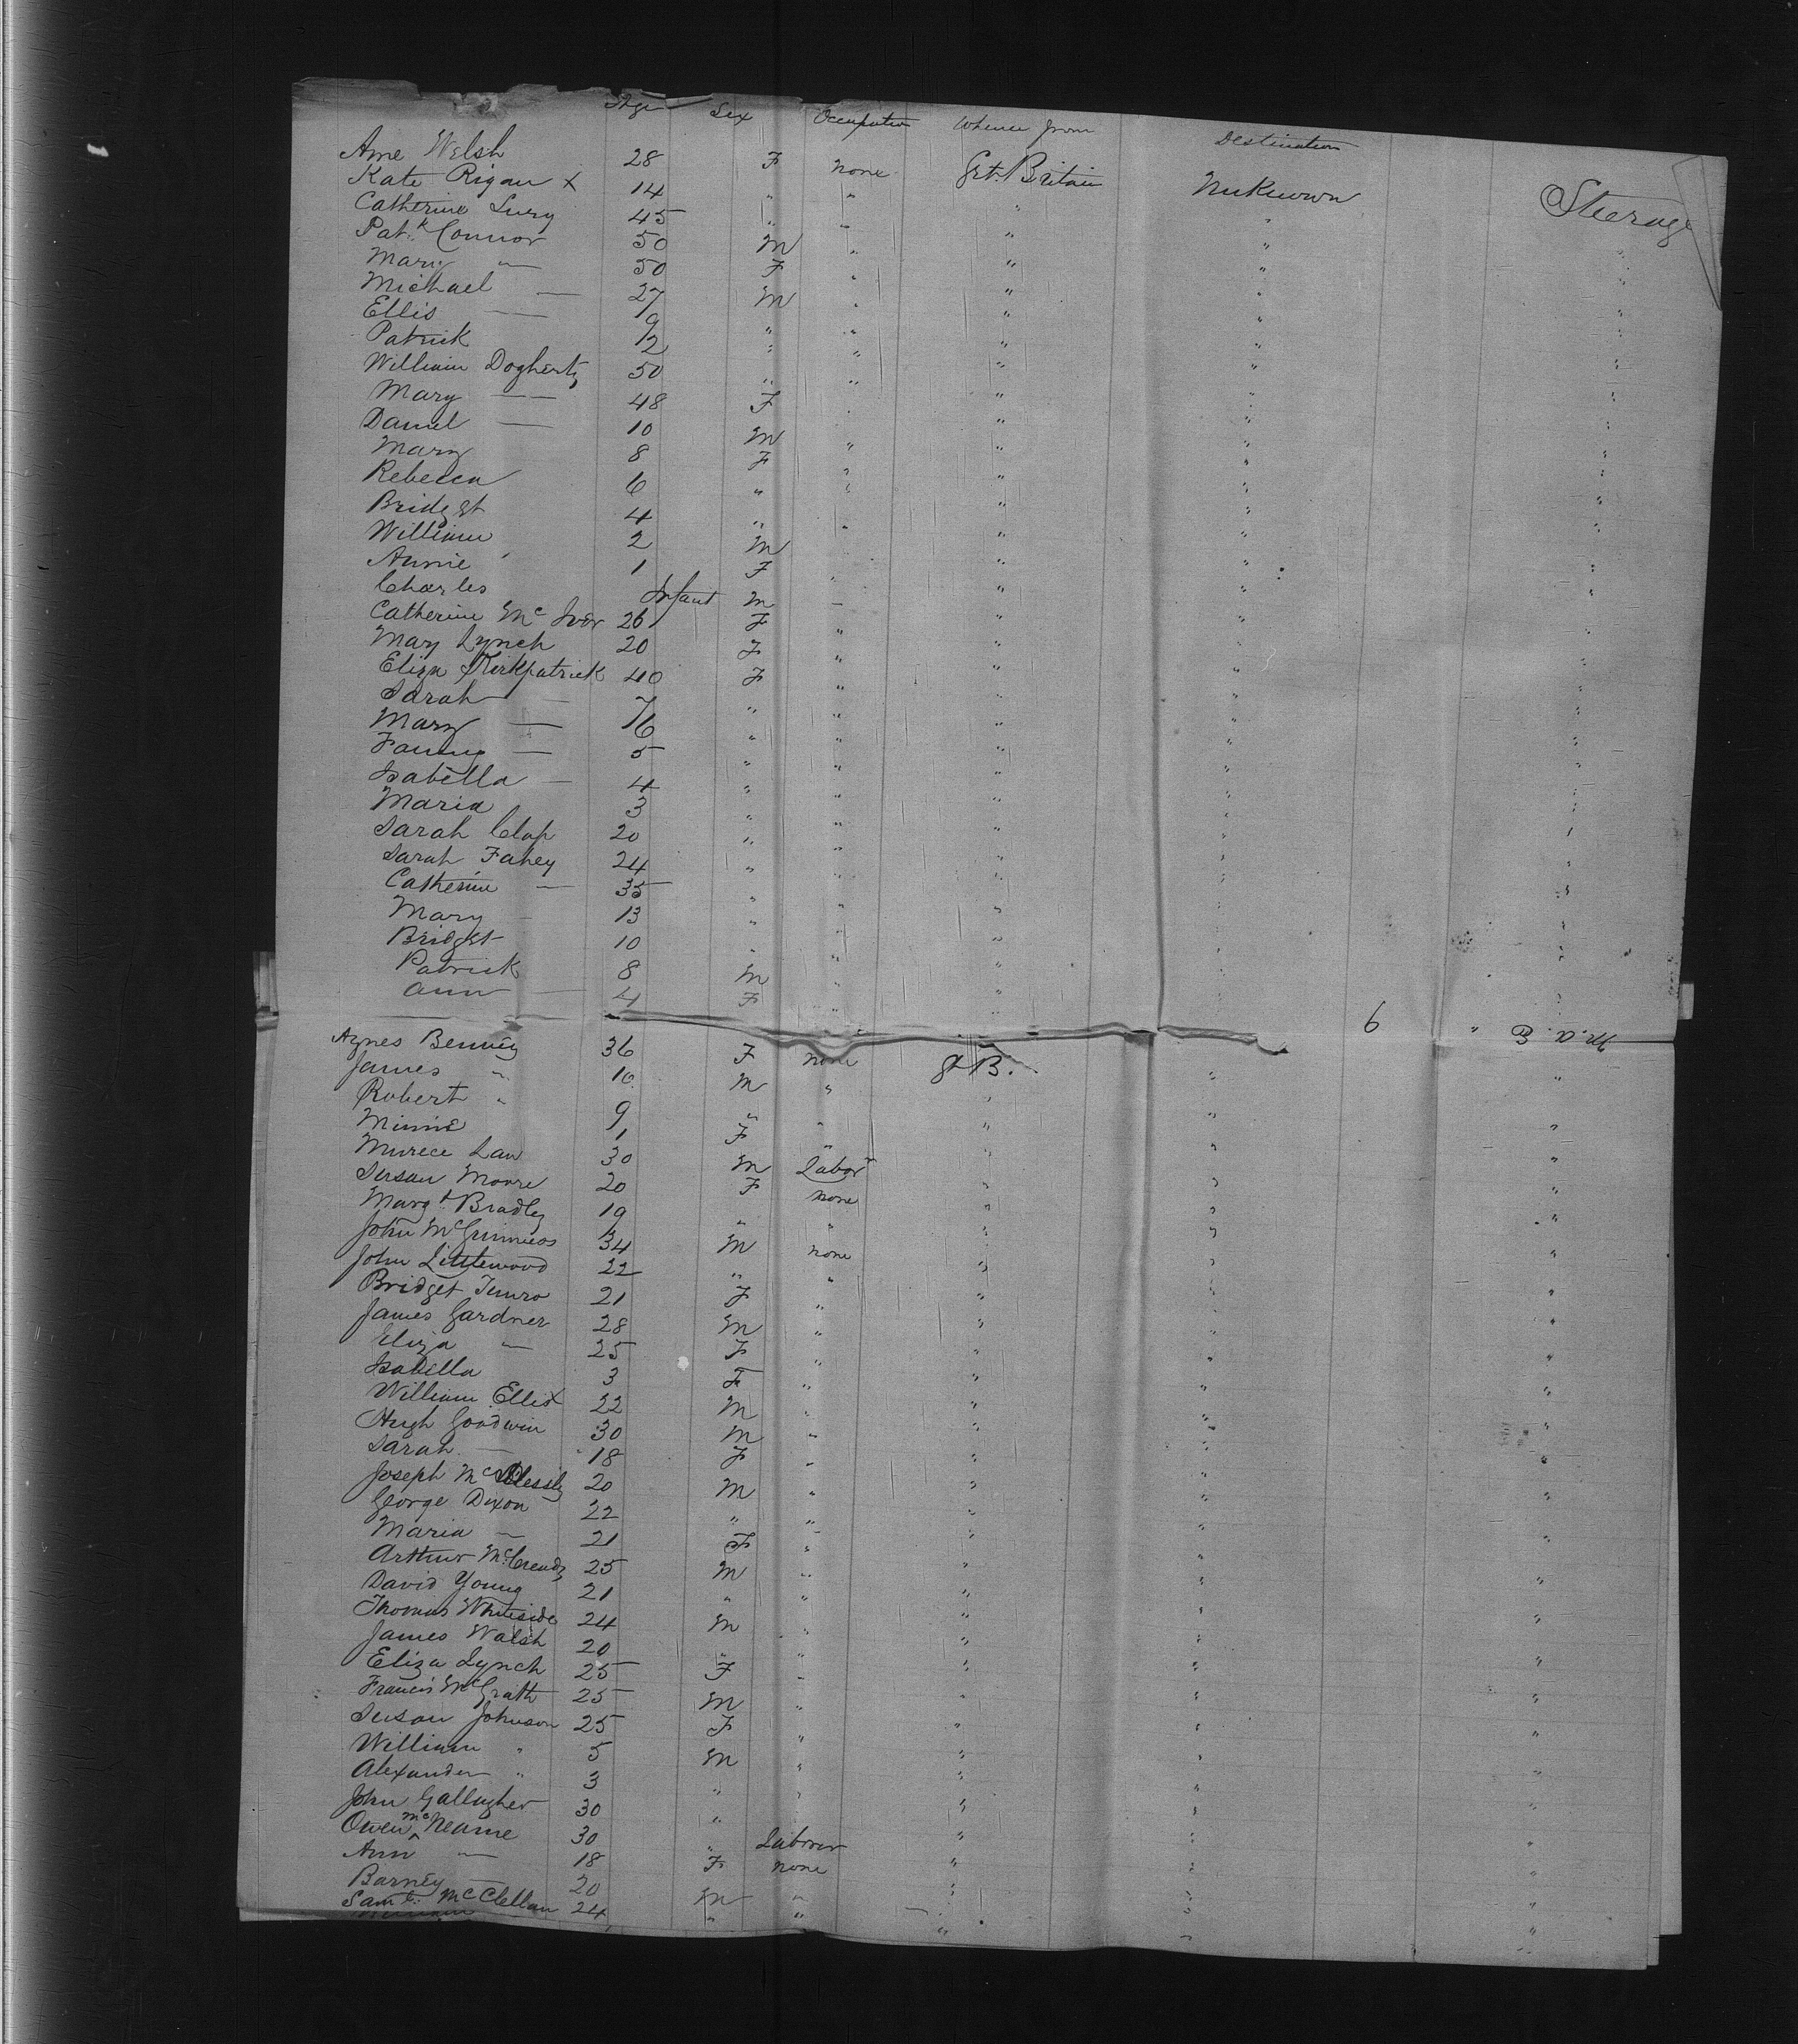 Age Sex Occupation Whence from Destination
Ame Welsh 28 F none Grt. Britain Unknown Steerage
Kate Rigan x 14 " " " "
Catherine Lury 45 " " " "
Patk Connor 50 M " " " "
Mary " 50 F " " " "
Michael — 27 M " " " "
Ellis — 9 " " " " "
Patrick 2 " " " " "
William Dogherty 50 " " " " "
Mary — 48 F " " " "
Daniel — 10 M " " " "
Mary 8 F " " " "
Rebecca 6 " " " " "
Bridget 4 " " " " "
William 2 M " " "
Annie 1 F " " " "
Charles Infant M " " " "
Catherine Mc Ivor 26 F " " " "
Mary Lynch 20 F " " " "
Eliza Kirkpatrick 40 F " " " "
Sarah — 7 " " " " "
Mary — 6 " " " " "
Fanny — 5 " " " " "
Isabella — 4 " " " " "
Maria 3 " " " " "
Sarah Clap 20 " " " " "
Sarah Fahey 24 " " " " "
Catherine — 35 " " " " "
Mary - 13 " " " " "
Bridget 10 " " " " "
Patrick 8 M " " " "
Ann — 4 F " " " "
6
Agnes Benney 36 F none G B. "
James " 10 M " " " "
Robert " 9 " " " " "
Minnie 1 F " " " "
Murece Law 30 M Labor " " "
Susan Moore 20 F none " " "
Margt Bradley 19 " " " " "
John McGinniss 34 M none " " "
John Littlewood 22 " " " " "
Bridget 21 F " " " "
James Gardner 28 M " " " "
Eliza — 25 F " " " "
Isabella 3 F " " " "
William Ellis x 22 M " " " "
Hugh Goodwin 30 M " " " "
Sarah — 18 F " " " "
Joseph Mc 20 M " " " "
George Dixon 22 " " " " "
Maria — 21 F " " " "
Arthur McCready 25 M " " " "
David Young 21 " " " " "
Thomas Whiteside 24 M " " " "
James Walsh 20 " " " " "
Eliza Lynch 25 F " " " "
Francis McGrath 25 M " " " "
Susan Johnson 25 F " " " "
William " 5 M " " " "
Alexander " 3 " " " " "
John Gallagher 30 " " " "
Owen Mc Neame 30 " Laborer " " "
Ann — 18 F none " " "
Barney — 20 M " " " "
Saml. McClellan 24 " " " " "